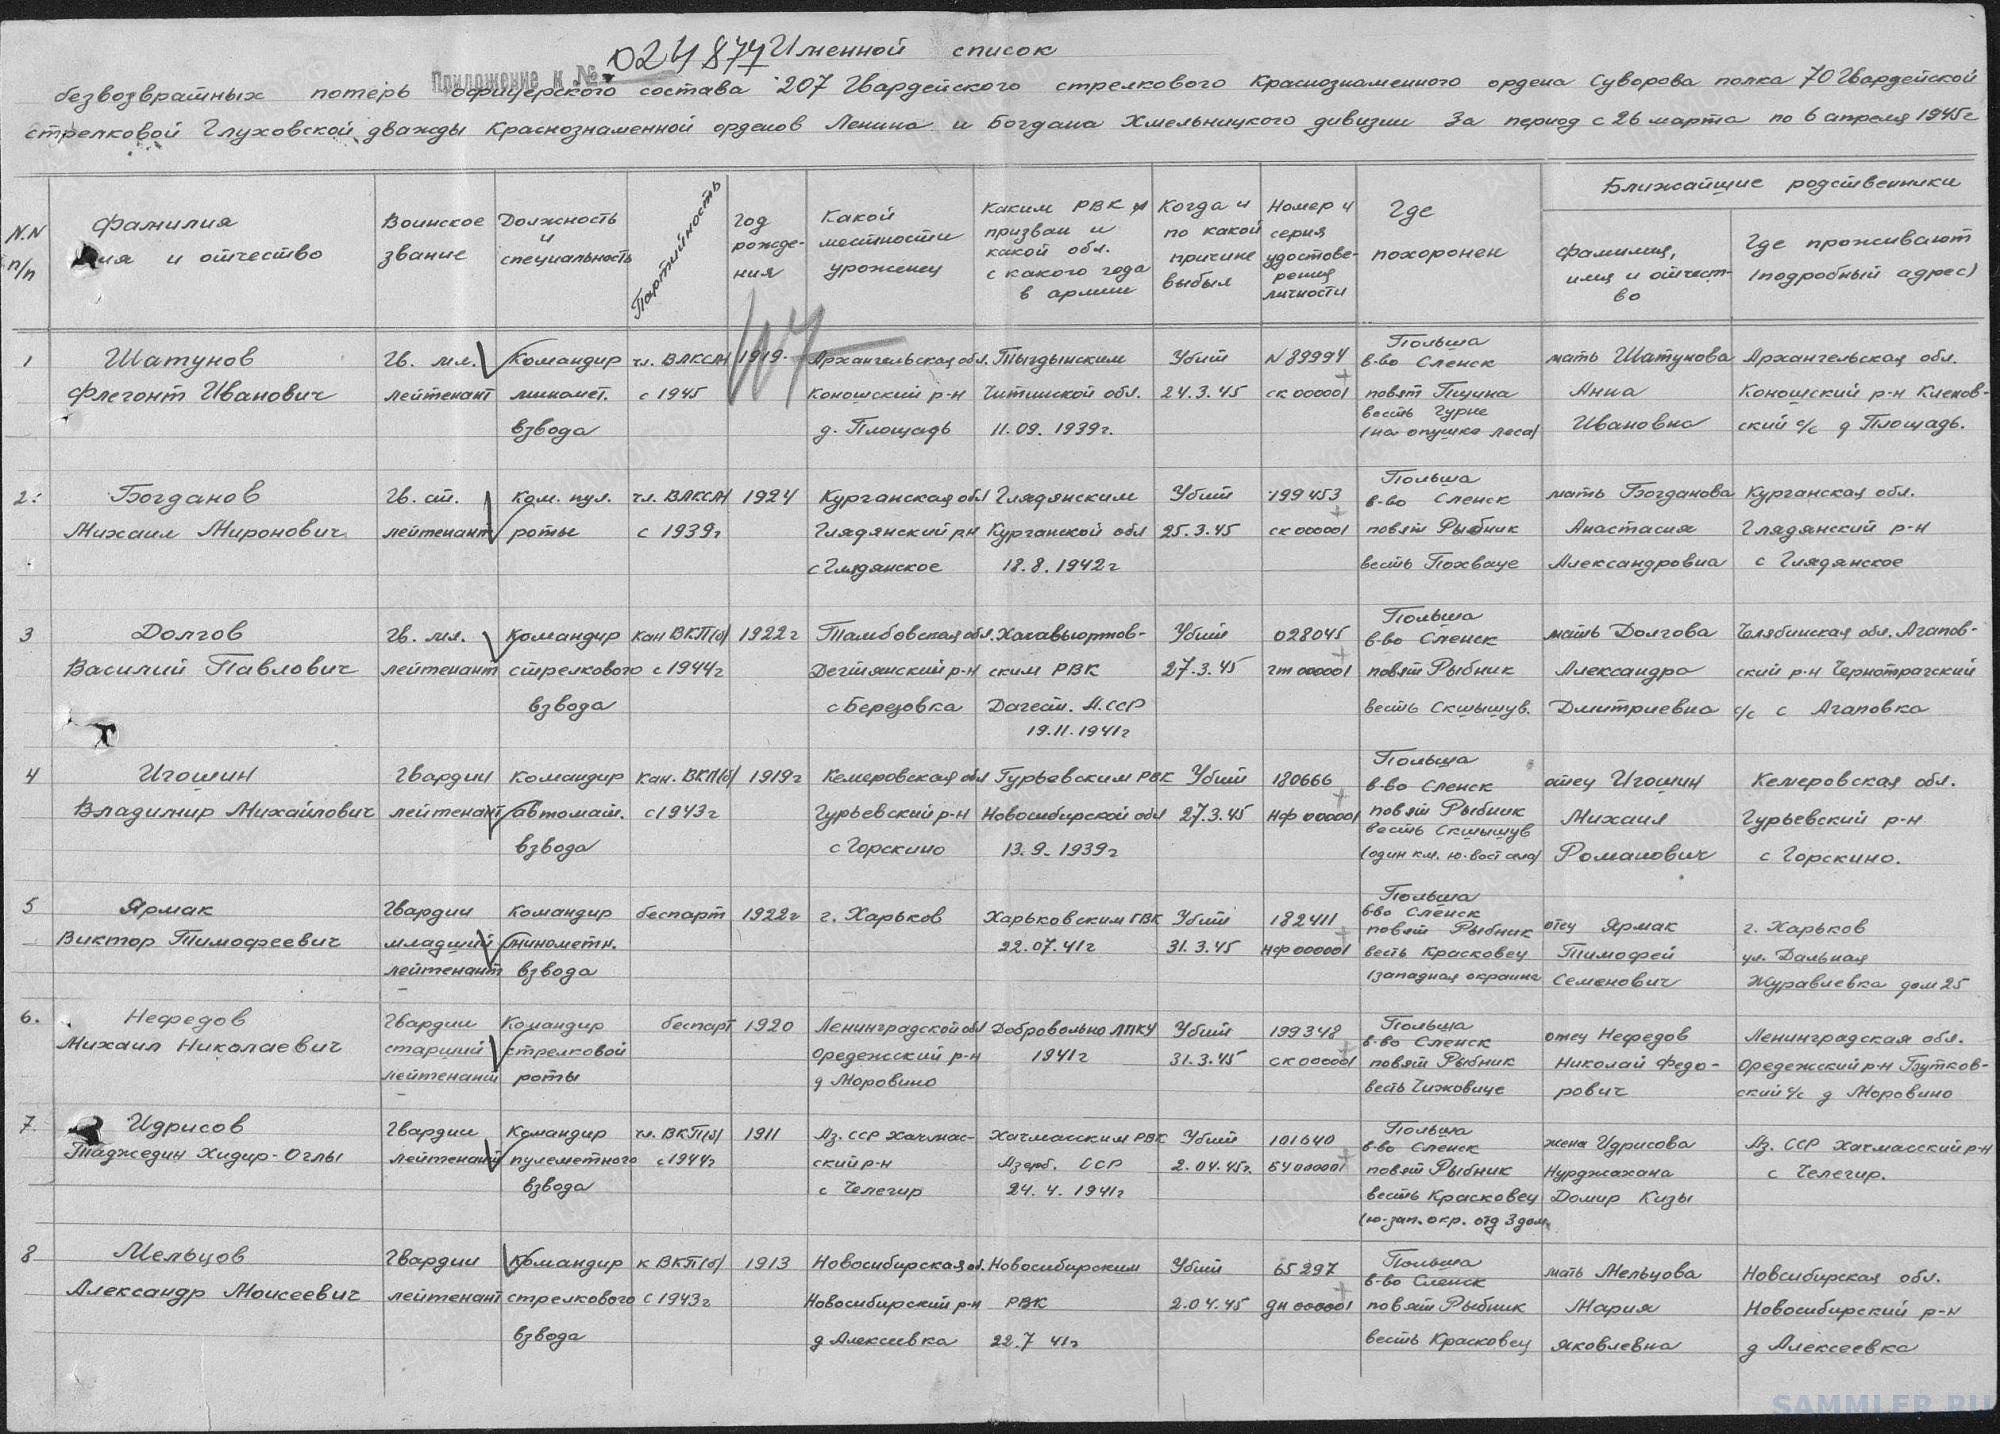 Приложение к № 024877
Именной список
безвозвратных потерь офицерского состава 207 Гвардейского стрелкового Краснознаменного ордена Суворова полка 70 Гвардейской
стрелковой Глуховской дважды Краснознаменной орденов Ленина и Богдана Хмельницкого дивизии За период с 26 марта по 6 апреля 1945г
N.N п/п
Фамилия
имя и отчество
Воинское
звание
Должность
и
специальность
Партийность
Год
рожде-
ния
Какой
местности
уроженец
Каким РВК
призван и
какой обл.
с какого года
в армии
Когда и
по какой
причине
выбыл
Номер и
серия
удостове-
рения
личности
Где
похоронен
Ближайшие родственники
фамилия,
имя и отчест-
во
Где проживают
(подробный адрес)
107
1
Шатунов
Флегонт Иванович
Гв. мл.
лейтенант
Командир
миномет.
взвода
чл. ВЛКСМ
с 1945
1919.
Архангельская обл.
Коношский р-н
д. Площадь
Тыгдынским
Читинской обл.
11.09. 1939г.
Убит
24.3.45
N 89994
ск 000001
Польша
в-во Сленск
повят Пщина
весть Гурне
(на опушке леса)
мать Шатунова
Анна
Ивановна
Архангельская обл.
Коношский р-н Кленов-
ский с/с д Площадь.
2.
Богданов
Михаил Миронович
Гв. ст.
лейтенант
Ком. пул.
роты
чл. ВЛКСМ
с 1939г
1924
Курганская обл
Глядянский р-н
с Глядянское
Глядянским
Курганской обл
18.8.1942г
Убит
25.3.45
199453
ск 000001
Польша
в-во Сленск
повят Рыбник
весть Похваце
мать Богданова
Анастасия
Александровна
Курганская обл.
Глядянский р-н
с Глядянское
3
Долгов
Василий Павлович
Гв. мл.
лейтенант
Командир
стрелкового
взвода
кан ВКП(б)
с 1944г
1922г
Тамбовская обл.
Дегтянский р-н
с Березовка
Хасавьюртов-
ским РВК
Дагест. А.ССР
19.11.1941г
Убит
27.3.45
028045
гт 000001
Польша
в-во Сленск
повят Рыбник
весть Скшышув.
мать Долгова
Александра
Дмитриевна
Челябинская обл. Агапов-
ский р-н Чернотрагский
с/с с Агаповка
4
Игошин
Владимир Михайлович
Гвардии
лейтенант
Командир
автомат.
взвода
Кан. ВКП(б)
с 1943г
1919г
Кемеровская обл
Гурьевский р-н
с Горскино
Гурьевским РВК
Новосибирской обл
13.9.1939г
Убит
27.3.45
180666
нф 000001
Польша
в-во Сленск
повят Рыбник
весть Скшышув
(один км. ю-вост села)
отец Игошин
Михаил
Романович
Кемеровская обл.
Гурьевский р-н
с Горскино.
5
Ярмак
Виктор Тимофеевич
Гвардии
младший
лейтенант
Командир
минометн.
взвода
беспарт
1922г
г. Харьков
Харьковским ГВК
22.07.41г
Убит
31.3.45
182411
нф 000001
Польша
в-во Сленск
повят Рыбник
весть Красковец
(западная окраина
отец Ярмак
Тимофей
Семенович
г. Харьков
ул. Дальная
Журавлевка дом 25
6.
Нефедов
Михаил Николаевич
Гвардии
старший
лейтенант
Командир
стрелковой
роты
беспарт
1920
Ленинградской обл
Оредежский р-н
д Моровино
Добровольно ЛПКУ
1941г
Убит
31.3.45
199348
ск 000001
Польша
в-во Сленск
повят Рыбник
весть Чижовице
отец Нефедов
Николай Федо-
рович
Ленинградская обл.
Оредежский р-н Бутков-
ский с/с д Моровино
7
Идрисов
Таджедин Хидир-Оглы
Гвардии
лейтенант
Командир
пулеметного
взвода
чл. ВКП(б)
с 1944г
1911
Аз. ССР Хачмас-
ский р-н
с Челегир
Хачмасским РВК
Азерб. ССР
24. 4. 1941г
Убит
2.04.45г.
101640
БЧ 000001
Польша
в-во Сленск
повят Рыбник
весть Красковец
(ю-зап. окр. отд 3 дом.
жена Идрисова
Нурджахана
Домир Кизы
Аз. ССР Хачмасский р-н
с Челегир.
8
Мельцов
Александр Моисеевич
Гвардии
лейтенант
Командир
стрелкового
взвода
к ВКП(б)
с 1943г
1913
Новосибирская об.
Новосибирский р-н
д Алексеевка
Новосибирским
РВК
22.7 41г
Убит
2.04.45
65297
дн 000001
Польша
в-во Сленск
повят Рыбник
весть Красковец
мать Мельцова
Мария
Яковлевна
Новсибирская обл.
Новосибирский р-н
д Алексеевка
SAMMLER.RU